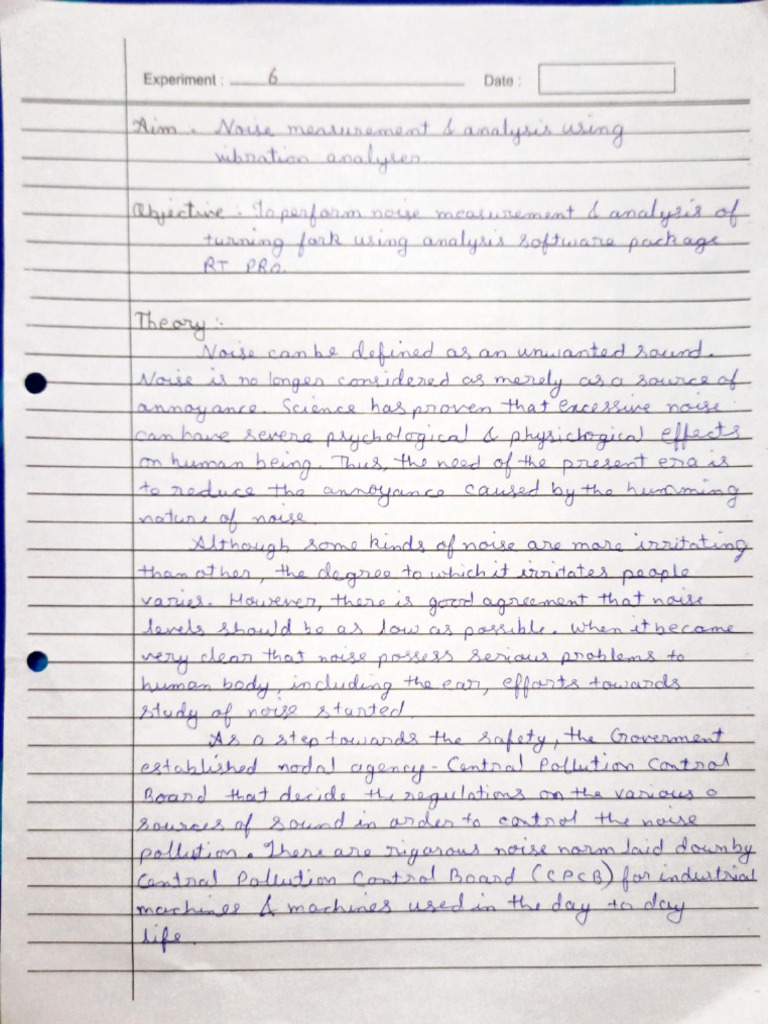 Experiment : 6 Date :
Aim - Noise measurement & analysis using
vibration analyser.
Objective : To perform noise measurement & analysis of
turning fork using analysis software package
RT PRO.
Theory :-
Noise can be defined as an unwanted sound.
Noise is no longer considered as merely as a source of
annoyance. Science has proven that excessive noise
can have severe psychological & physichogical effects
on human being. Thus, the need of the present era is
to reduce the annoyance caused by the humming
nature of noise.
Although some kinds of noise are more irritating
than other, the degree to which it irritates people
varies. However, there is good agreement that noise
levels should be as low as possible. When it became
very clear that noise possess serious problems to
human body, including the ear, efforts towards
study of noise started.
As a step towards the safety, the Goverment
established nodal agency - Central Pollution Control
Board that decide the regulations on the various
sources of sound in order to control the noise
pollution. There are rigorous noise norm laid down by
Central Pollution Control Board (CPCB) for industrial
machines & machines used in the day to day
life.